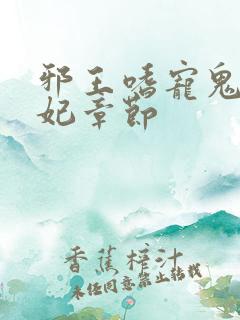 邪王嗜寵鬼
妃章節
香蕉榨汁
未经同意禁止转载